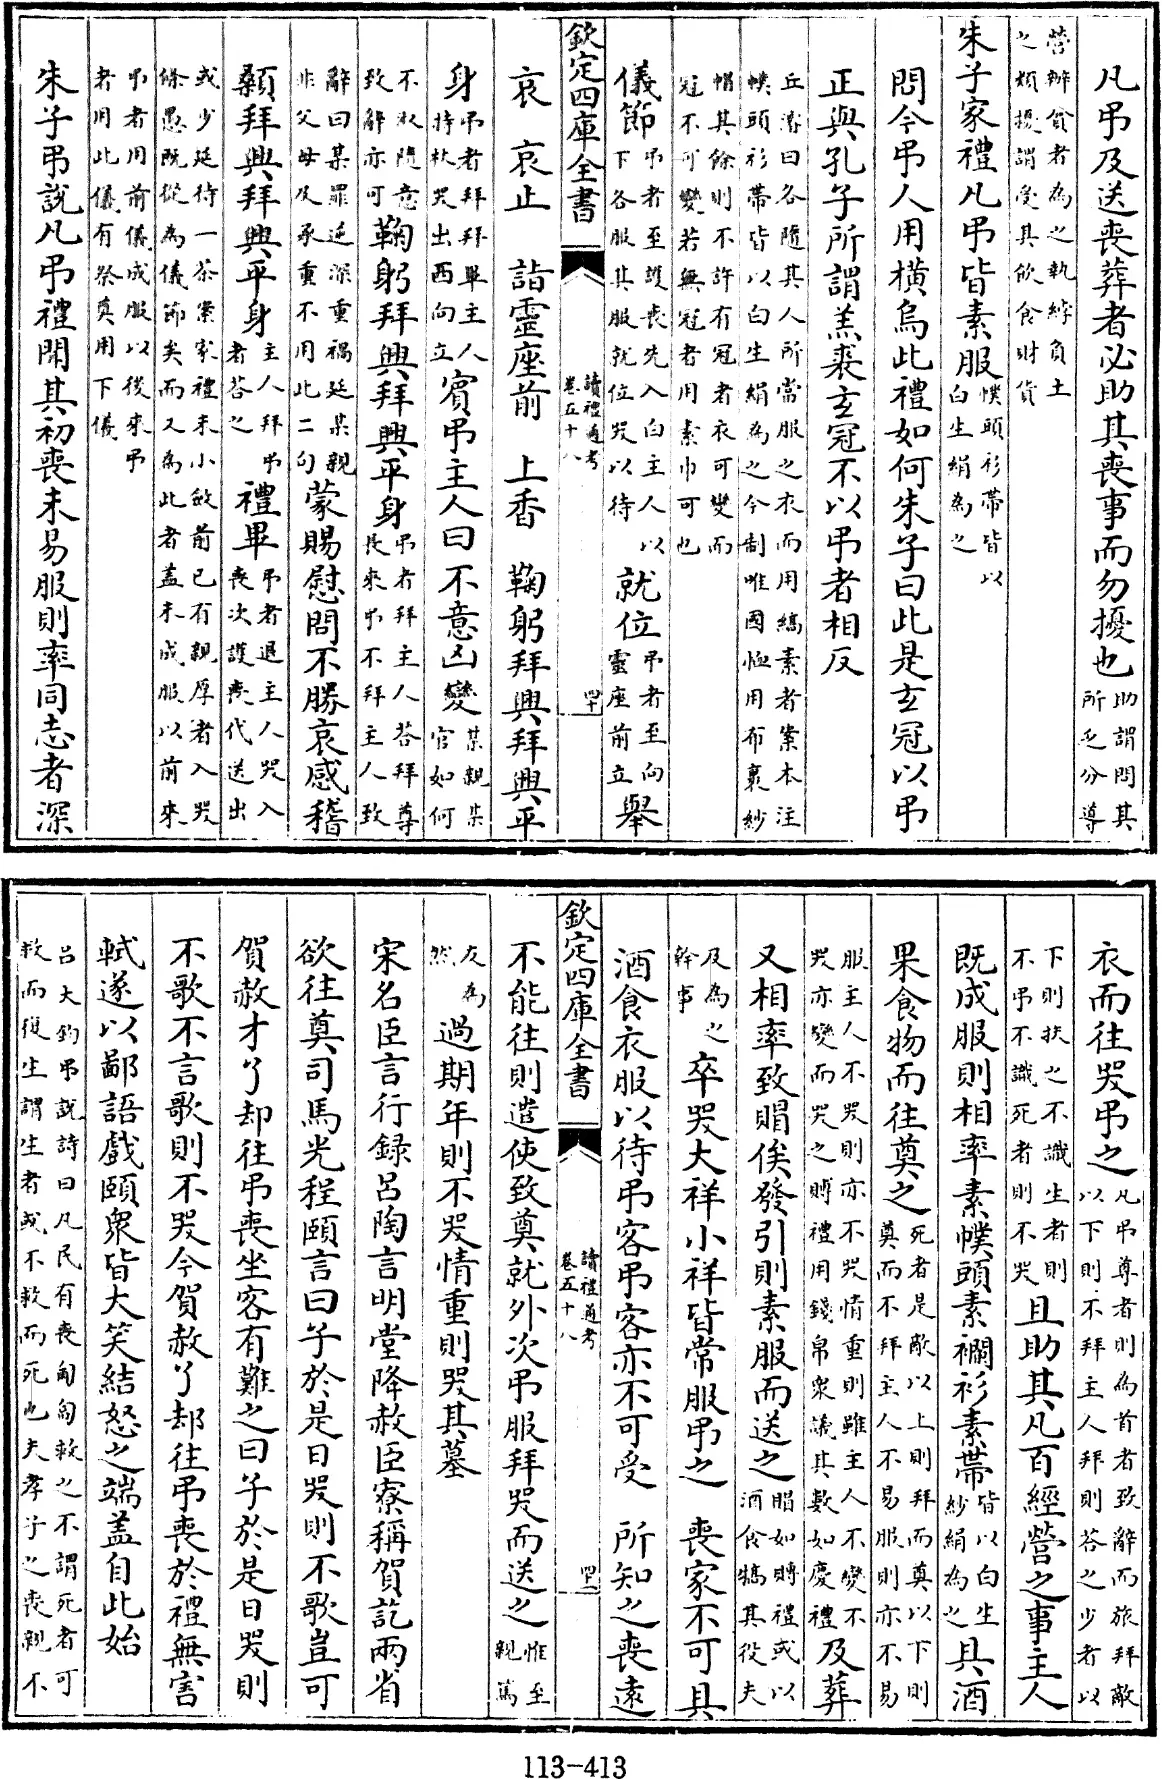 凡弔及送喪葬者必助其喪事而勿擾也助謂問其所乏分導
營辦貧者為之執綍負土之類擾謂受其飲食財貨
朱子家禮凡弔皆素服幞頭衫帶皆以白生絹為之
問今弔人用橫烏此禮如何朱子曰此是玄冠以弔
正與孔子所謂羔裘玄冠不以弔者相反
丘濬曰各隨其人所當服之衣而用縞素者案本注幞頭衫帶皆以白生絹為之今制唯國恤用布裹紗
帽其餘則不許有冠者衣可變而冠不可變若無冠者用素巾可也
儀節弔者至護喪先入白主人以下各服其服就位哭以待 就位弔者至向靈座前立舉
欽定四庫全書 讀禮通考 卷五十八 四十
哀 哀止 詣靈座前 上香 鞠躬拜興拜興平
身弔者拜拜畢主人持杖哭出西向立賓弔主人曰不意凶變某親某官如何
不淑隨意致辭亦可鞠躬拜興拜興平身弔者拜主人荅拜尊長來弔不拜主人致
辭曰某罪逆深重禍延某親非父母及承重不用此二句蒙賜慰問不勝哀感稽
顙拜興拜興平身主人拜弔者荅之 禮畢弔者退主人哭入喪次護喪代送出
或少延待一茶案家禮未小斂前已有親厚者入哭條愚既從為儀節矣而又為此者蓋未成服以前來
弔者用前儀成服以後來弔者用此儀有祭奠用下儀
朱子弔説凡弔禮聞其初喪未易服則率同志者深
衣而往哭弔之凡弔尊者則為首者致辭而旅拜敵以下則不拜主人拜則荅之少者以
下則扶之不識生者則不弔不識死者則不哭且助其凡百經營之事主人
既成服則相率素幞頭素襴衫素帶皆以白生紗絹為之具酒
果食物而往奠之死者是敵以上則拜而奠以下則奠而不拜主人不易服則亦不易
服主人不哭則亦不哭情重則雖主人不變不哭亦變而哭之賻禮用錢帛衆議其數如慶禮及葬
又相率致賵俟發引則素服而送之賵如賻禮或以酒食犒其役夫
及為之幹事 卒哭大祥小祥皆常服弔之 喪家不可具
酒食衣服以待弔客弔客亦不可受 所知之喪遠
欽定四庫全書 讀禮通考 卷五十八 四一
不能往則遣使致奠就外次弔服拜哭而送之惟至親篤
友為然 過期年則不哭情重則哭其墓
宋名臣言行録吕陶言明堂降赦臣寮稱賀訖兩省
欲往奠司馬光程頤言曰子於是日哭則不歌豈可
賀赦才了却往弔喪坐客有難之曰子於是日哭則
不歌不言歌則不哭今賀赦了却往弔喪於禮無害
軾遂以鄙語戲頤衆皆大笑結怒之端蓋自此始
吕大鈞弔説詩曰凡民有喪匍匐救之不謂死者可救而復生謂生者或不救而死也夫孝子之喪親不
113-413